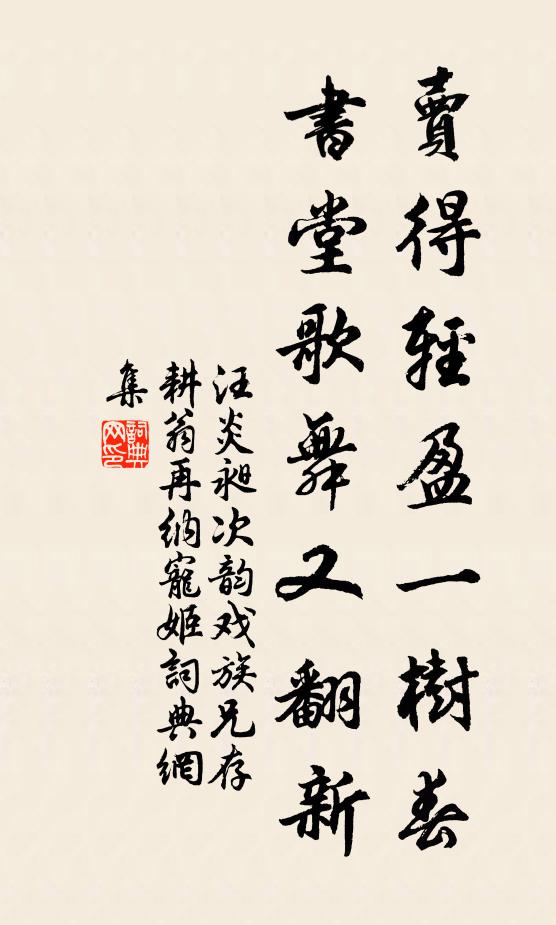 賣得輕盈一樹春
書堂歌舞又翻新
汪炎昶次韵戏族兄存
耕翁再纳寵姬詞典網
集
詞典
网印